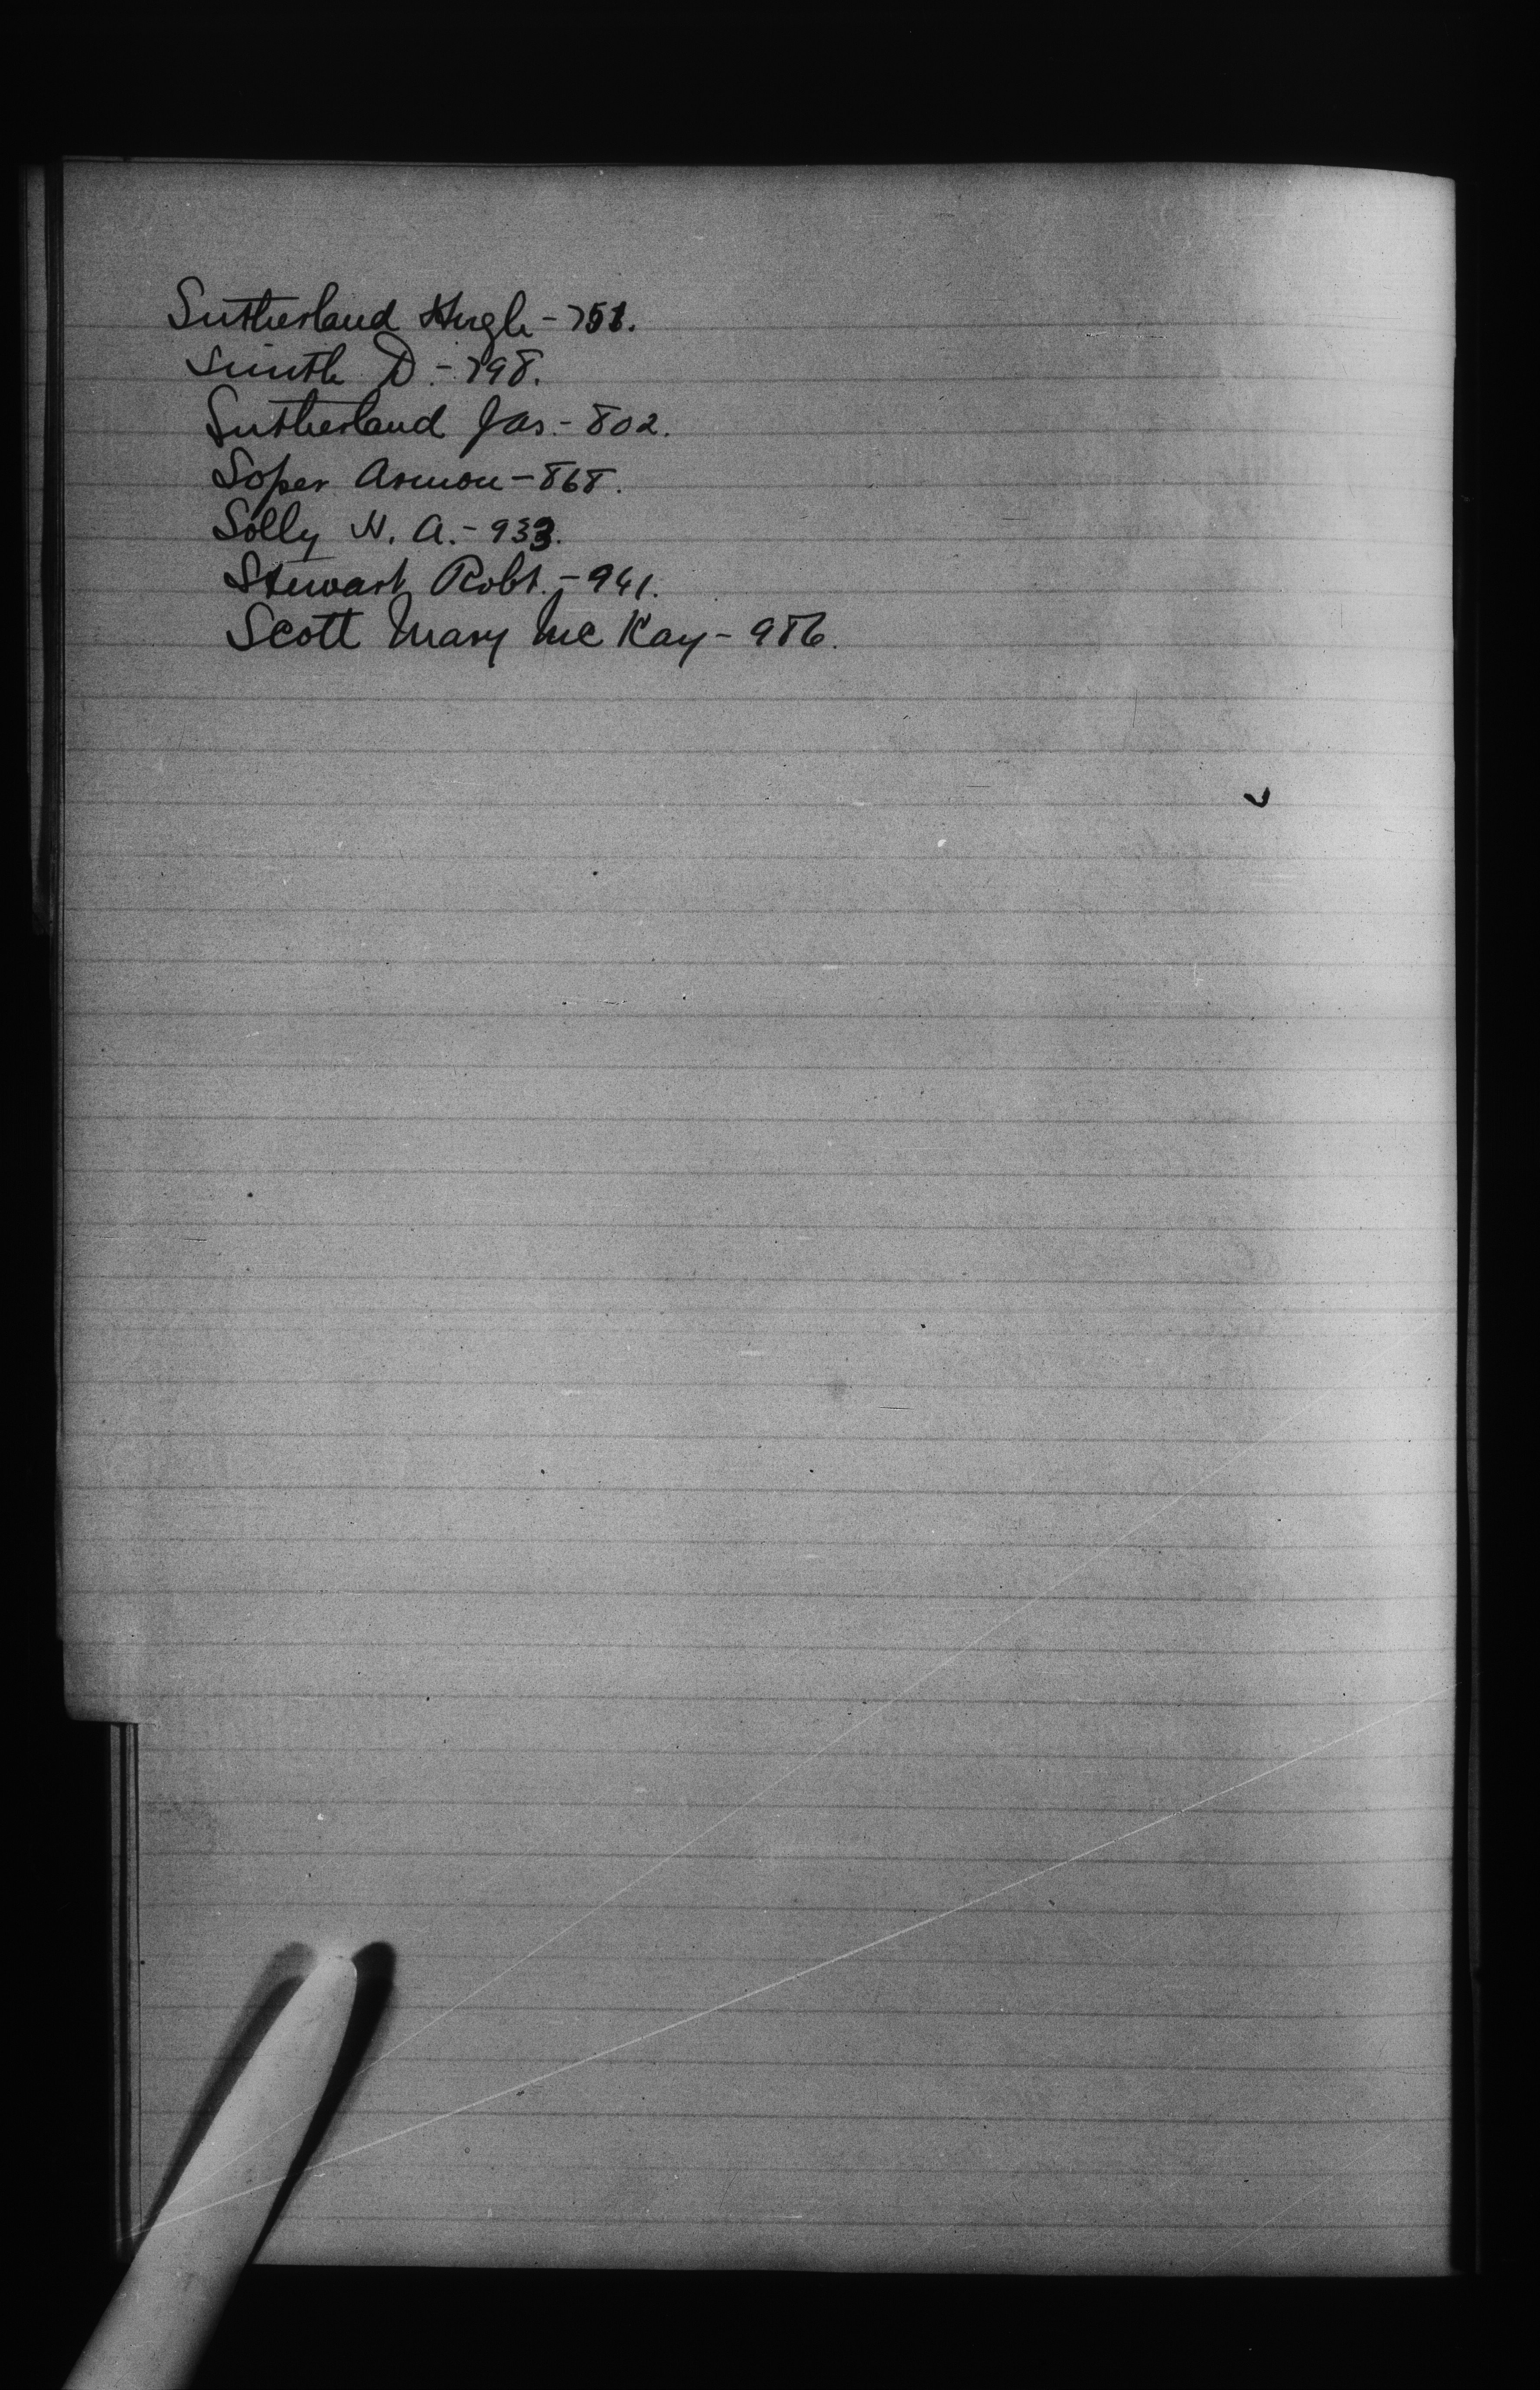 Sutherland Hugh - 751.
Smith D. - 798.
Sutherland Jas. - 802.
Soper Armon - 868.
Solly H. A. - 933.
Stewart Robt. - 941.
Scott Mary McKay - 986.